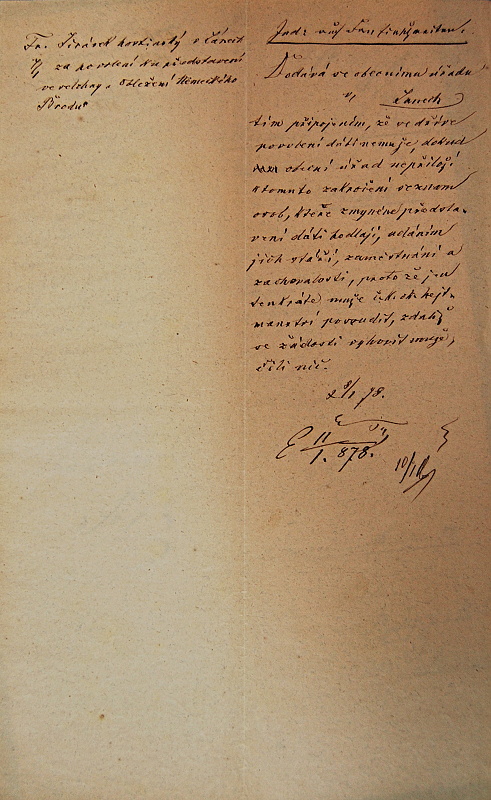 Fr. Jirásek hostinský v Lánech
7/1 za povolení ku představení
ve veselohry Obležení Německého
Brodu
Dodává se obecnímu úřadu
v Lanech
tím připojením, že se dříve
povolení dáti nemůže, dokud
obecní úřad nepřiloží
ktomuto zakročení seznam
osob, kteře zmyněné předsta-
vení dáti hodlají, udáním
jich stáří, zaměstnání a
zachovalosti, proto že jen
tenkráte může c.k. okr. hejt-
manství posoudit, zdaliž
se žádosti vyhovit může,
čili nic.
8/1 78.
E 11/1. 878.
10/1